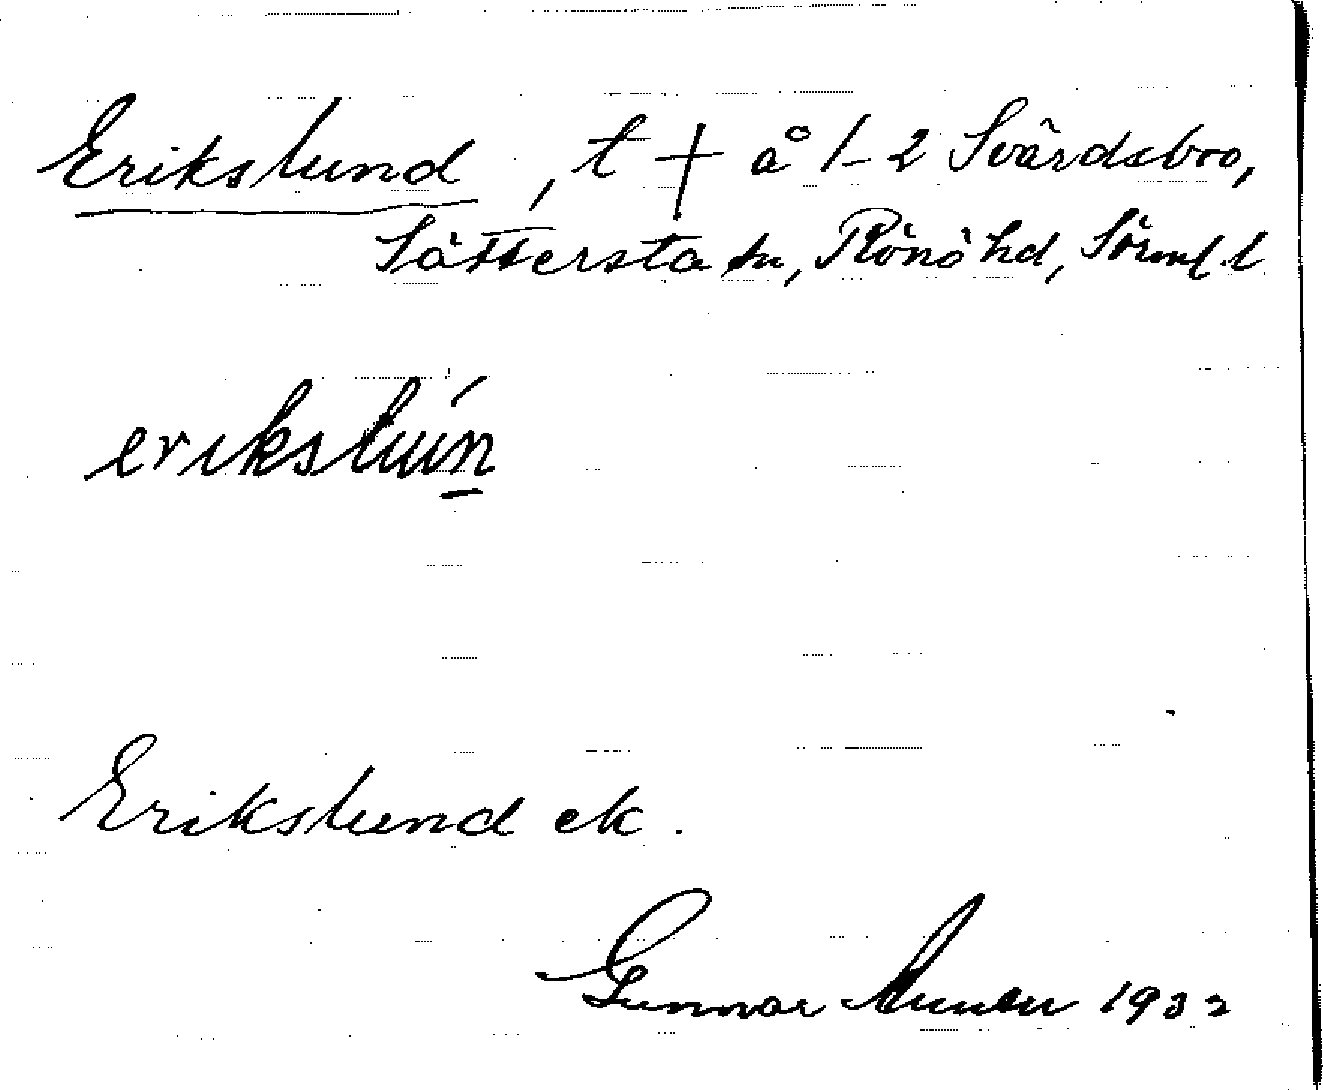 Erikslund, t + å 1-2 Svärdsbro,
Sättersta sn, Rönö hd, Sörml. l
erikslún
Erikslund ek.
Gunnar 1932